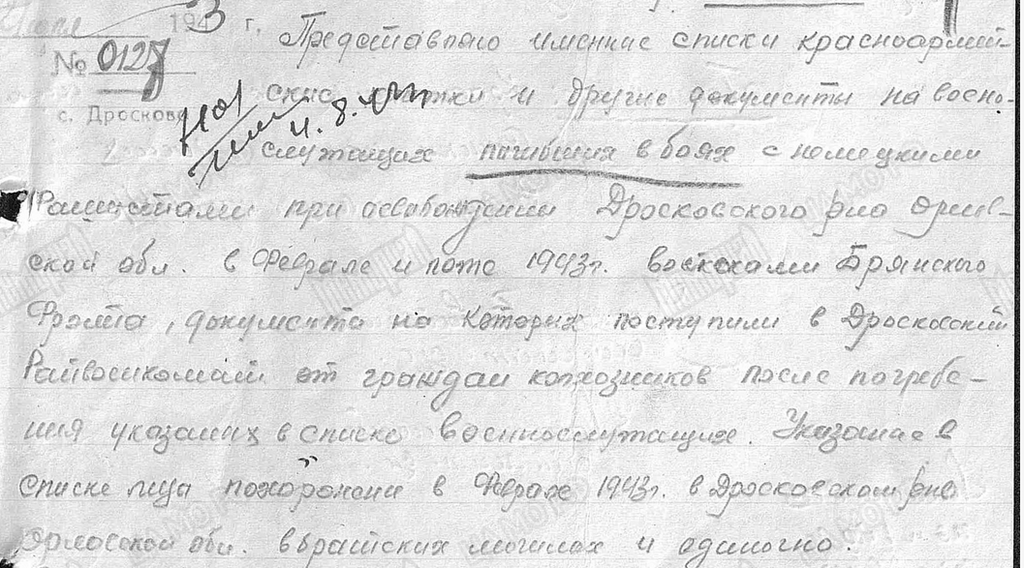 1943 г.
№ 0127
с. Дросково
Представляю именние списки красноармей-
ские книжки и другие документы на воено-
служащих погибших в боях с немецкими
Фашистами при освобождении Дросковского р/на Орлов-
ской обл. в Феврале и поже 1943г. войсками Брянского
Фронта, документа на которых поступили в Дросковский
Райвоенкомат от граждан колхозников после погребе-
ния указаных в списке военнослужащих. Указаные в
списке лица похоронени в Феврале 1943г. в Дросковском р/не
Орловской обл. в братских могилах и одиночно.